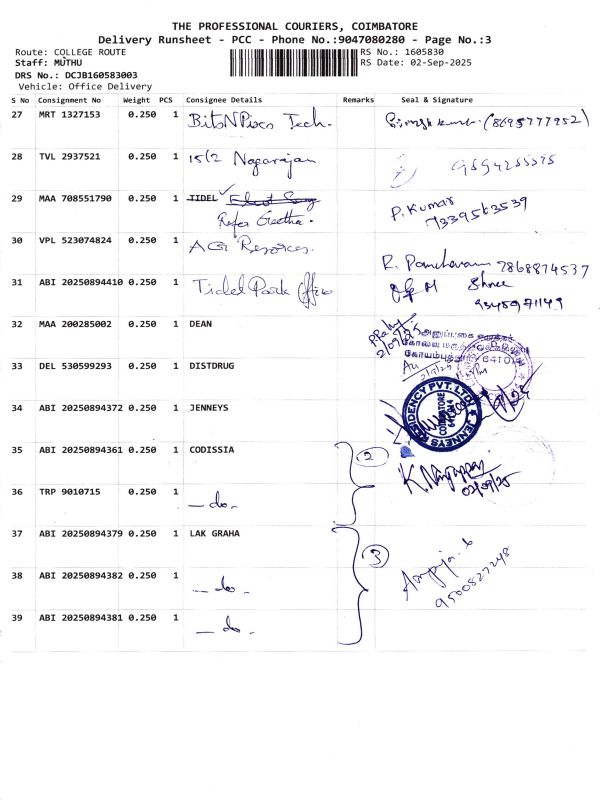 THE PROFESSIONAL COURIERS, COIMBATORE
Delivery Runsheet - PCC - Phone No.:9047080280 - Page No.:3
Route: COLLEGE ROUTE RS No.: 1605830
Staff: MUTHU RS Date: 02-Sep-2025
DRS No.: DCJB160583003
Vehicle: Office Delivery
S No Consignment No Weight PCS Consignee Details Remarks Seal & Signature
27 MRT 1327153 0.250 1 BitsNPixs Tech. (8695777952)
28 TVL 2937521 0.250 1 15/2 Nagarajan
29 MAA 708551790 0.250 1 TIDEL P. Kumar
Refer Geetha. 7339563539
30 VPL 523074824 0.250 1 AGI
R. 7868874537
31 ABI 20250894410 0.250 1 Tidel Park Office M Shree
32 MAA 200285002 0.250 1 DEAN
33 DEL 530599293 0.250 1 DISTDRUG
34 ABI 20250894372 0.250 1 JENNEYS JENNEYS RESIDENCY PVT. LTD. COIMBATORE
35 ABI 20250894361 0.250 1 CODISSIA 2
36 TRP 9010715 0.250 1 - do - 02/09/25
37 ABI 20250894379 0.250 1 LAK GRAHA 3
38 ABI 20250894382 0.250 1 - do - 9500827248
39 ABI 20250894381 0.250 1 - do -